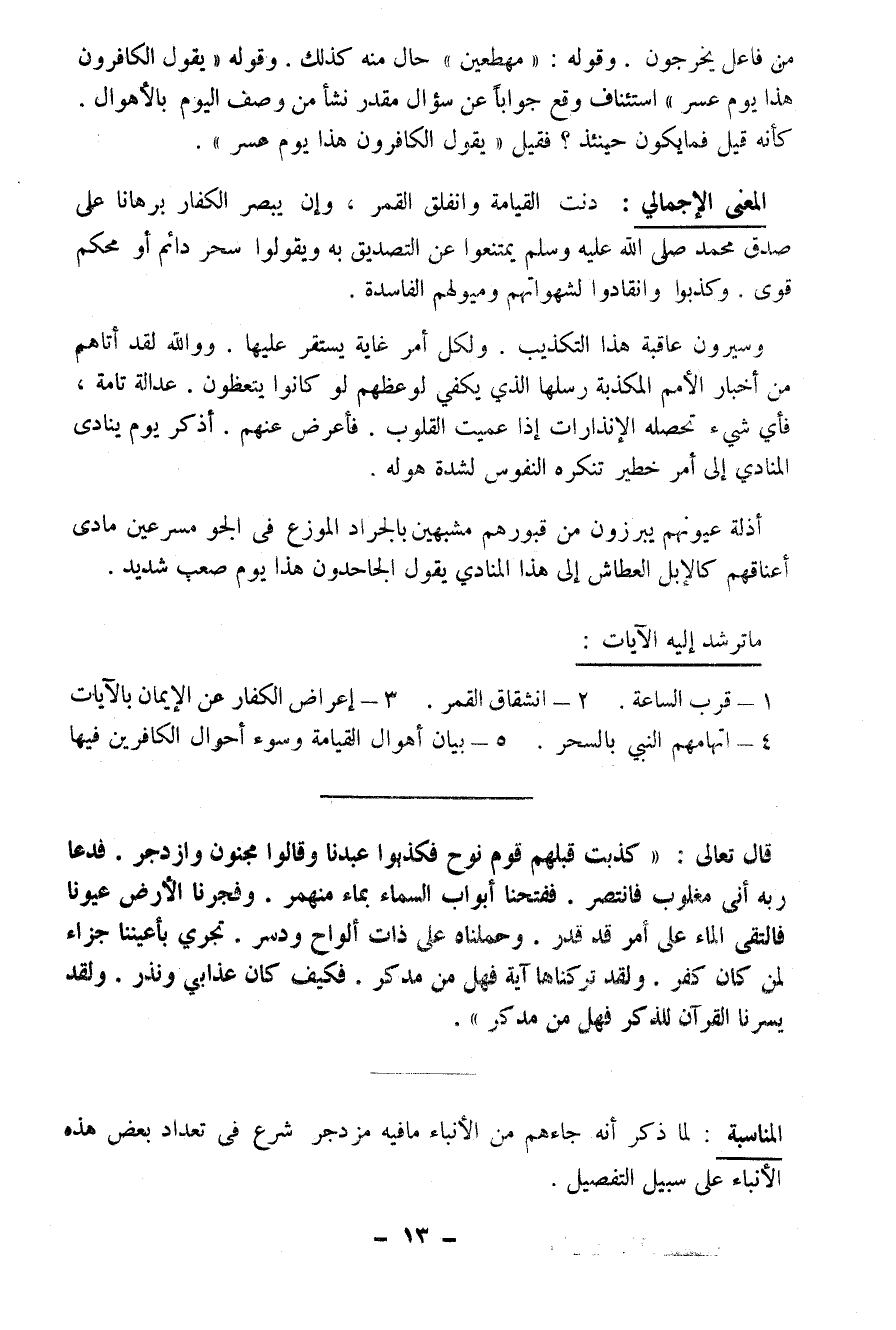 من فاعل يخرجون . وقوله : « مهطعين » حال منه كذلك . وقوله « يقول الكافرون
هذا يوم عسر » استئناف وقع جواباً عن سؤال مقدر نشأ من وصف اليوم بالأهوال .
كأنه قيل فمايكون حينئذ ؟ فقيل « يقول الكافرون هذا يوم عسر » .
المعنى الإجمالي : دنت القيامة وانفلق القمر ، وإن يبصر الكفار برهانا على
صدق محمد صلى الله عليه وسلم يمتنعوا عن التصديق به ويقولوا سحر دائم أو محكم
قوى . وكذبوا وانقادوا لشهواتهم وميولهم الفاسدة .
وسيرون عاقبة هذا التكذيب . ولكل أمر غاية يستقر عليها . ووالله لقد أتاهم
من أخبار الأمم المكذبة رسلها الذي يكفي لوعظهم لو كانوا يتعظون . عدالة تامة ،
فأي شيء تحصله الإنذارات إذا عميت القلوب . فأعرض عنهم . أذكر يوم ينادى
المنادي إلى أمر خطير تنكره النفوس لشدة هوله .
أذلة عيونهم يبرزون من قبورهم مشبهين بالجراد الموزع فى الجو مسرعين مادى
أعناقهم كالإبل العطاش إلى هذا المنادي يقول الجاحدون هذا يوم صعب شديد .
ماترشد إليه الآيات :
١ – قرب الساعة . ٢ – انشقاق القمر . ٣ – إعراض الكفار عن الإيمان بالآيات
٤ – اتهامهم النبي بالسحر . ٥ – بيان أهوال القيامة وسوء أحوال الكافرين فيها
قال تعالى : « كذبت قبلهم قوم نوح فكذبوا عبدنا وقالوا مجنون وازدجر . فدعا
ربه أنى مغلوب فانتصر . ففتحنا أبواب السماء بماء منهمر . وفجرنا الأرض عيونا
فالتقى الماء على أمر قد قدر . وحملناه على ذات ألواح ودسر . تجري بأعيننا جزاء
لمن كان كفر . ولقد تركناها آية فهل من مدكر . فكيف كان عذابي ونذر . ولقد
يسرنا القرآن للذكر فهل من مدكر » .
المناسبة : لما ذكر أنه جاءهم من الأنباء مافيه مزدجر شرع فى تعداد بعض هذه
الأنباء على سبيل التفصيل .
– ١٣ –